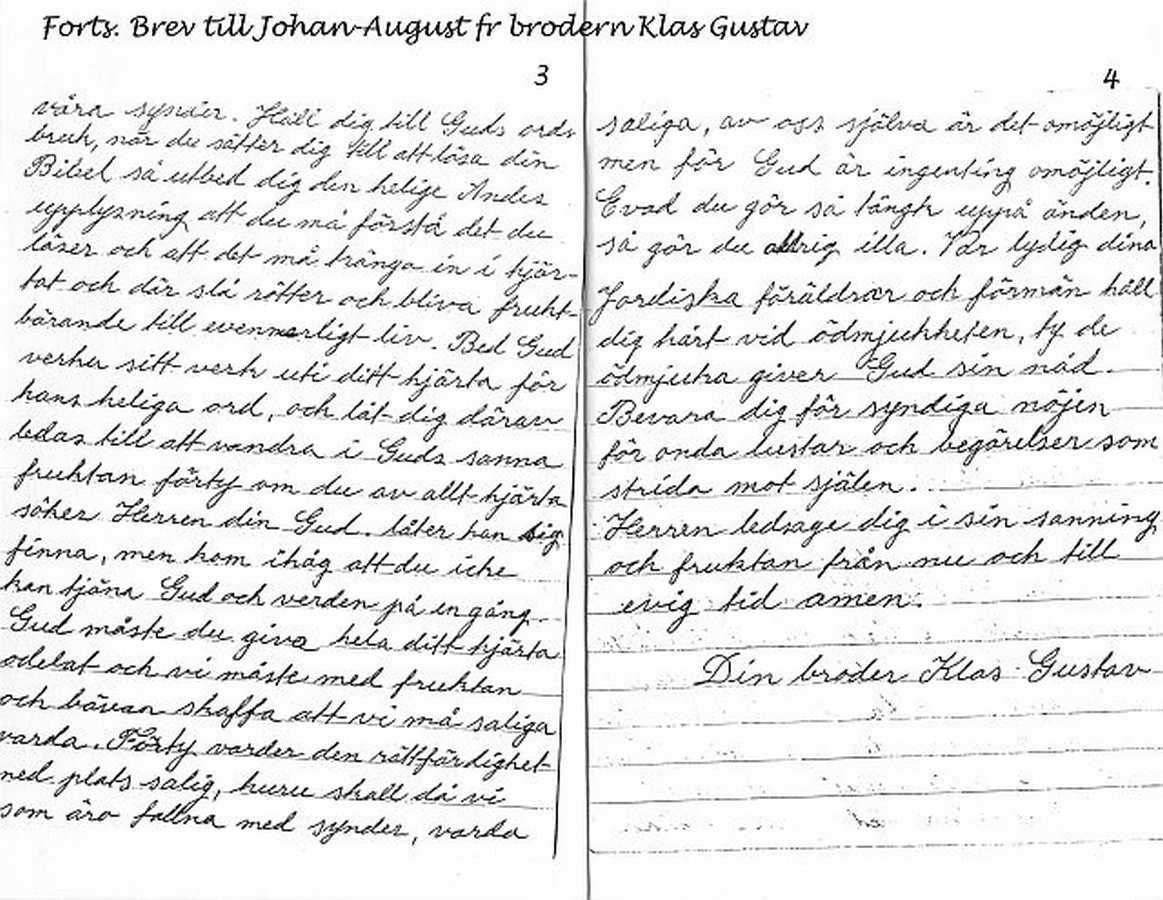 Forts. Brev till Johan-August fr brodern Klas Gustav
3
våra synder. Håll dig till Guds ords
bruk, när du sätter dig till att läsa din
Bibel så utbed dig den helige Andes
upplysning att du må förstå det du
läser och att det må tränga in i hjär-
tat och där slå rötter och bliva frukt-
bärande till evennerligt liv. Bed Gud
verka sitt verk uti ditt hjärta för
hans heliga ord, och låt dig därav
ledas till att vandra i Guds sanna
fruktan förty om du av allt hjärta
söker Herren din Gud. låter han sig
finna, men kom ihåg att du icke
kan tjäna Gud och verden på en gång.
Gud måste du giva hela ditt hjärta
odelat och vi måste med fruktan
och bävan skaffa att vi må saliga
varda. Förty varder den rättfärdighet
ned plats salig, huru skall då vi
som äro fallna med synder, varda
4
saliga, av oss själva är det omöjligt
men för Gud är ingenting omöjligt.
Evad du gör så tängk uppå änden,
så gör du alldrig illa. Var lydig dina
Jordiska föräldrar och förmän håll
dig hårt vid ödmjukheten, ty de
ödmjuka giver Gud sin nåd.
Bevara dig för syndiga nöjen
för onda lustar och begärelser som
strida mot själen.
Herren ledsage dig i sin sanning
och fruktan från nu och till
evig tid amen.
Din broder Klas Gustav